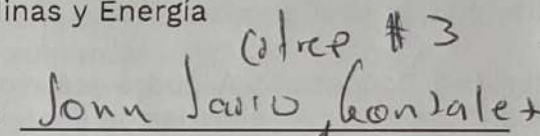 inas y Energía
Cotrep # 3
Jonn Jairo Gonzalez